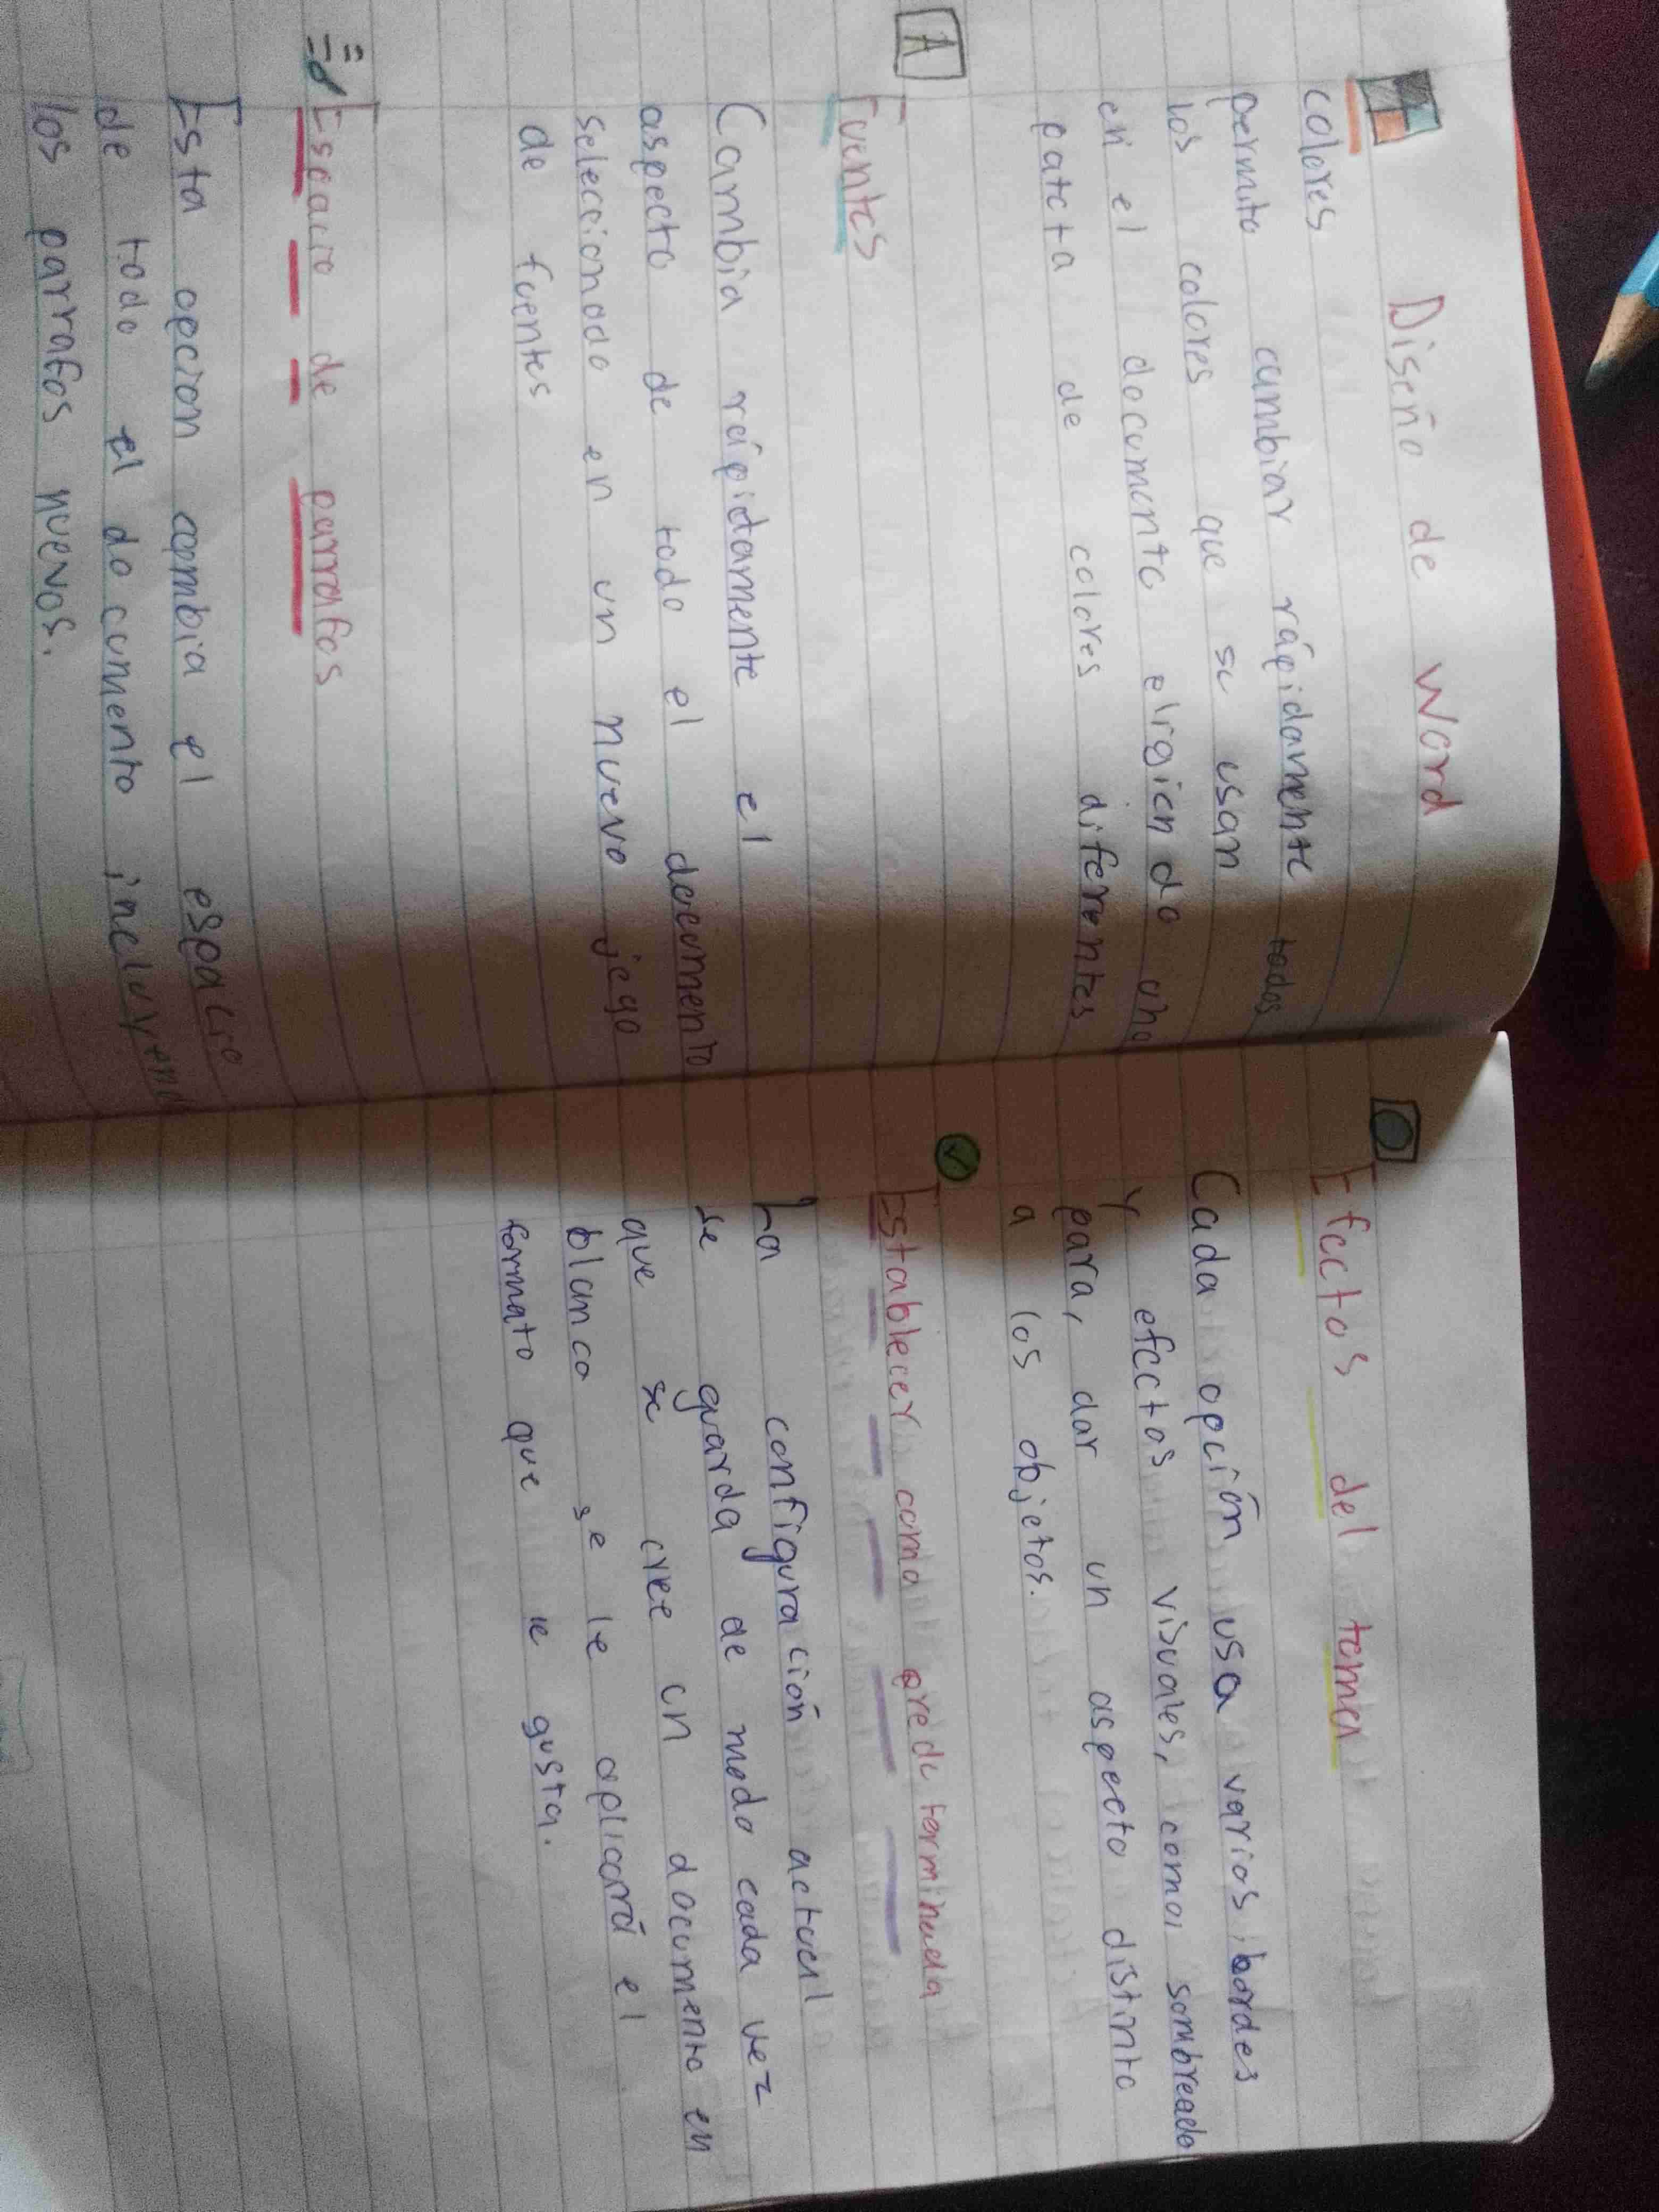 Diseño de Word
colores
permite cambiar rápidamente todos
los colores que se usan
en el documento elrgiendo una
pateta de colores diferentes
A
Fuentes
Cambia rápidamente el
aspecto de todo el documento
seleccionado en un nuevo jego
de fuentes
Espacio de parrafos
Esta opcion cambia el espacio
de todo el documento incluyend
los parrafos nuevos.
Efectos del tema
Cada opción usa varios bordes
y efectos visuales, como sombreado
para, dar un aspecto distinto
a los objetos.
Establecer como predeterminada
La configuración actual
se guarda de modo cada vez
que se cree un documento en
blanco se le aplicará el
formato que le gusta.